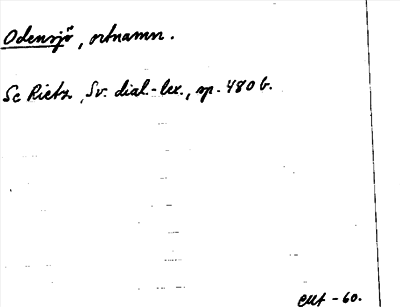 Odensjö, ortnamn.
Se Rietz, Sv. dial.-lex., sp. 480 b.
EMt -60.